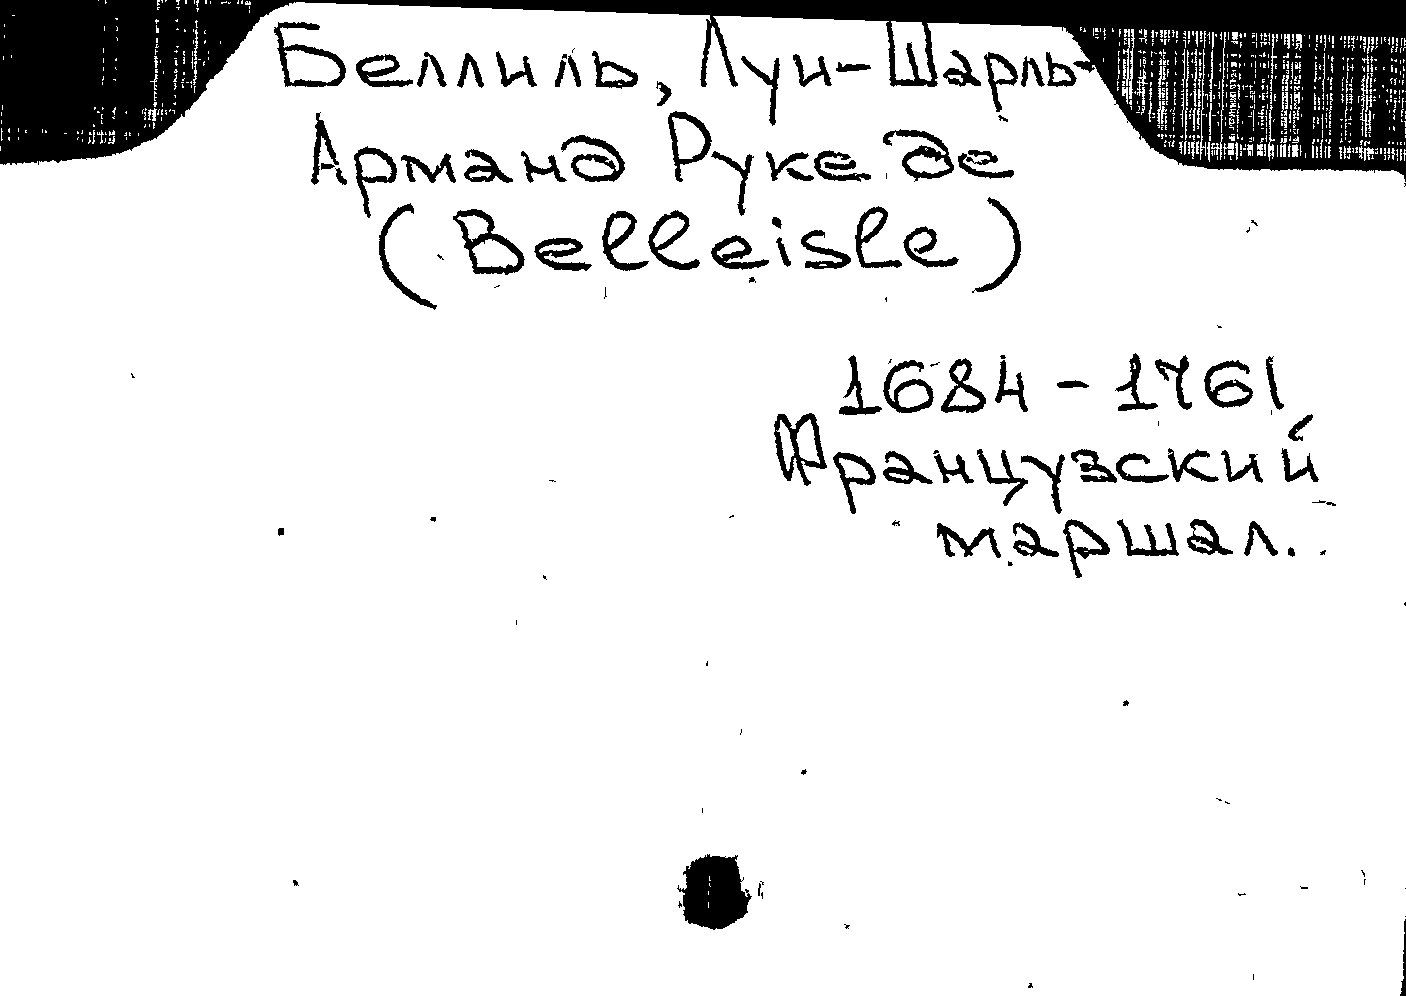 Беллиль, Луи-Шарль-
Арманд Руке де
(Belleisle)
1684-1761
Французский
маршал.